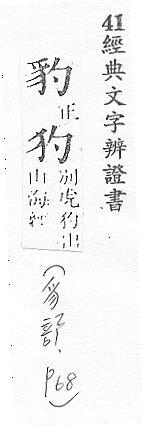 41經典文字辨證書
豹正
犳別虎犳出
山海經
(豸部. p68)